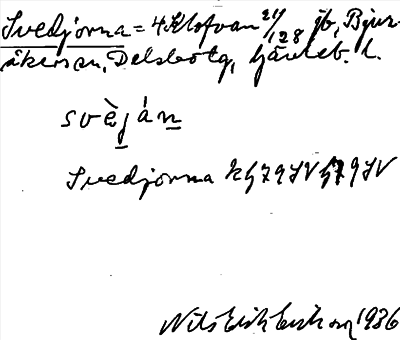 Svedjorna = 4 Klofvan 21/128 jb, Bjur-
åkers sn, Delsbo tg, Gävleb. l.
svèján
Svedjorna 2G79SV G79SV
Nils Erik Eriksson 1936